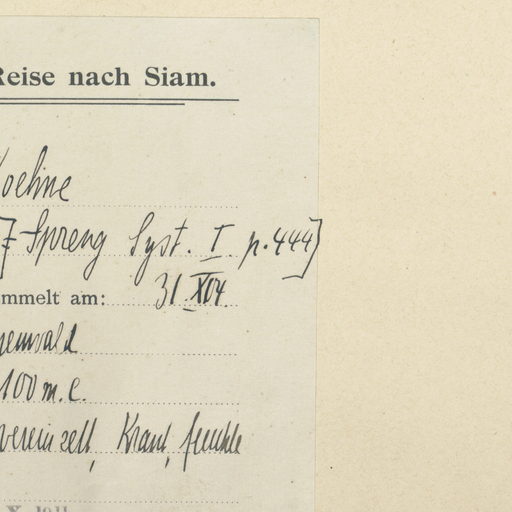 Reise nach Siam.
Koehne
Spreng Syst. I. p. 444]
mmelt am: 31 XII 04.
enwald
100 m. e.
vereinzelt, Kraut, feuchte